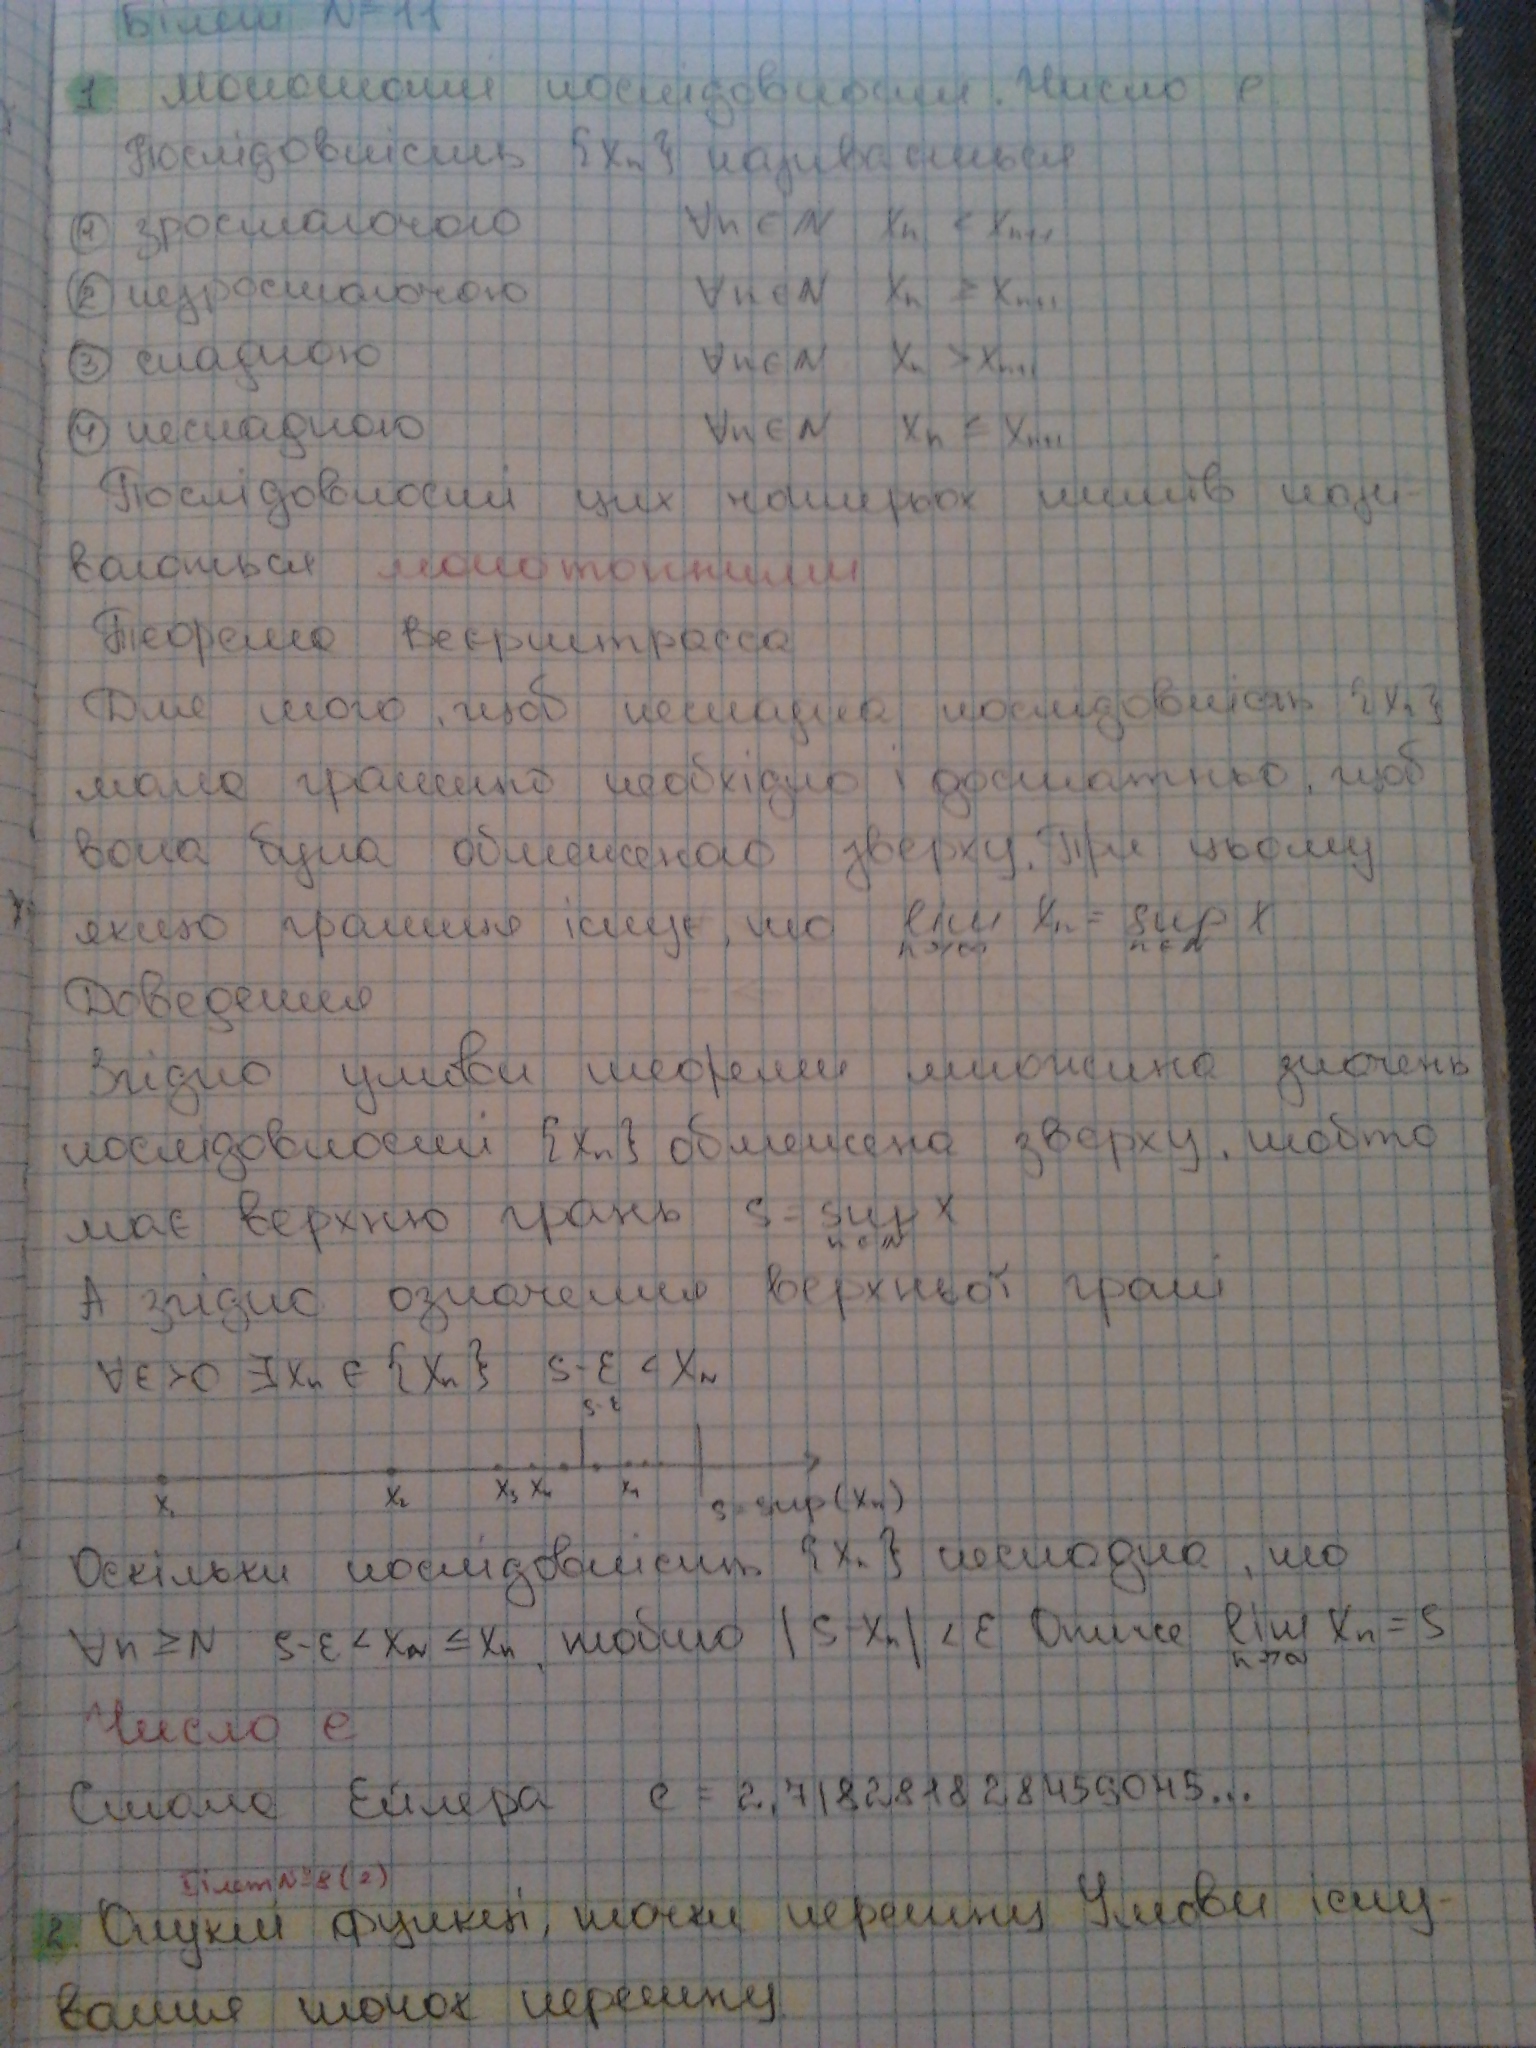 Білет №11
1 Монотонні послідовності. Число e.
Послідовність {xₙ} називається
① зростаючою ∀n∈N xₙ < xₙ₊₁
② незростаючою ∀n∈N xₙ ≥ xₙ₊₁
③ спадною ∀n∈N xₙ > xₙ₊₁
④ неспадною ∀n∈N xₙ ≤ xₙ₊₁
Послідовності цих чотирьох типів нази-
ваються монотонними
Теорема Веєрштрасса
Для того, щоб неспадна послідовність {xₙ}
мала границю необхідно і достатньо, щоб
вона була обмеженою зверху. При цьому
якщо границя існує, то lim xₙ = sup x
n→∞ n∈N
Доведення
Згідно умови теореми множина значень
послідовності {xₙ} обмежена зверху, тобто
має верхню грань S = sup x
n∈N
А згідно означення верхньої грані
∀ε>0 ∃xₙ ∈ {xₙ} S-ε < x_N
S-ε
x₁ x₂ x₃ x₄ xₙ S=sup(xₙ)
Оскільки послідовність {xₙ} неспадна, то
∀n ≥ N S-ε < x_N ≤ xₙ, тобто |S-xₙ| < ε Отже lim xₙ = S
n→∞
Число e
Стала Ейлера e = 2,718281828459045...
Білет №8(2)
2. Опуклі функції, точки перегину Умови існу-
вання точок перегину